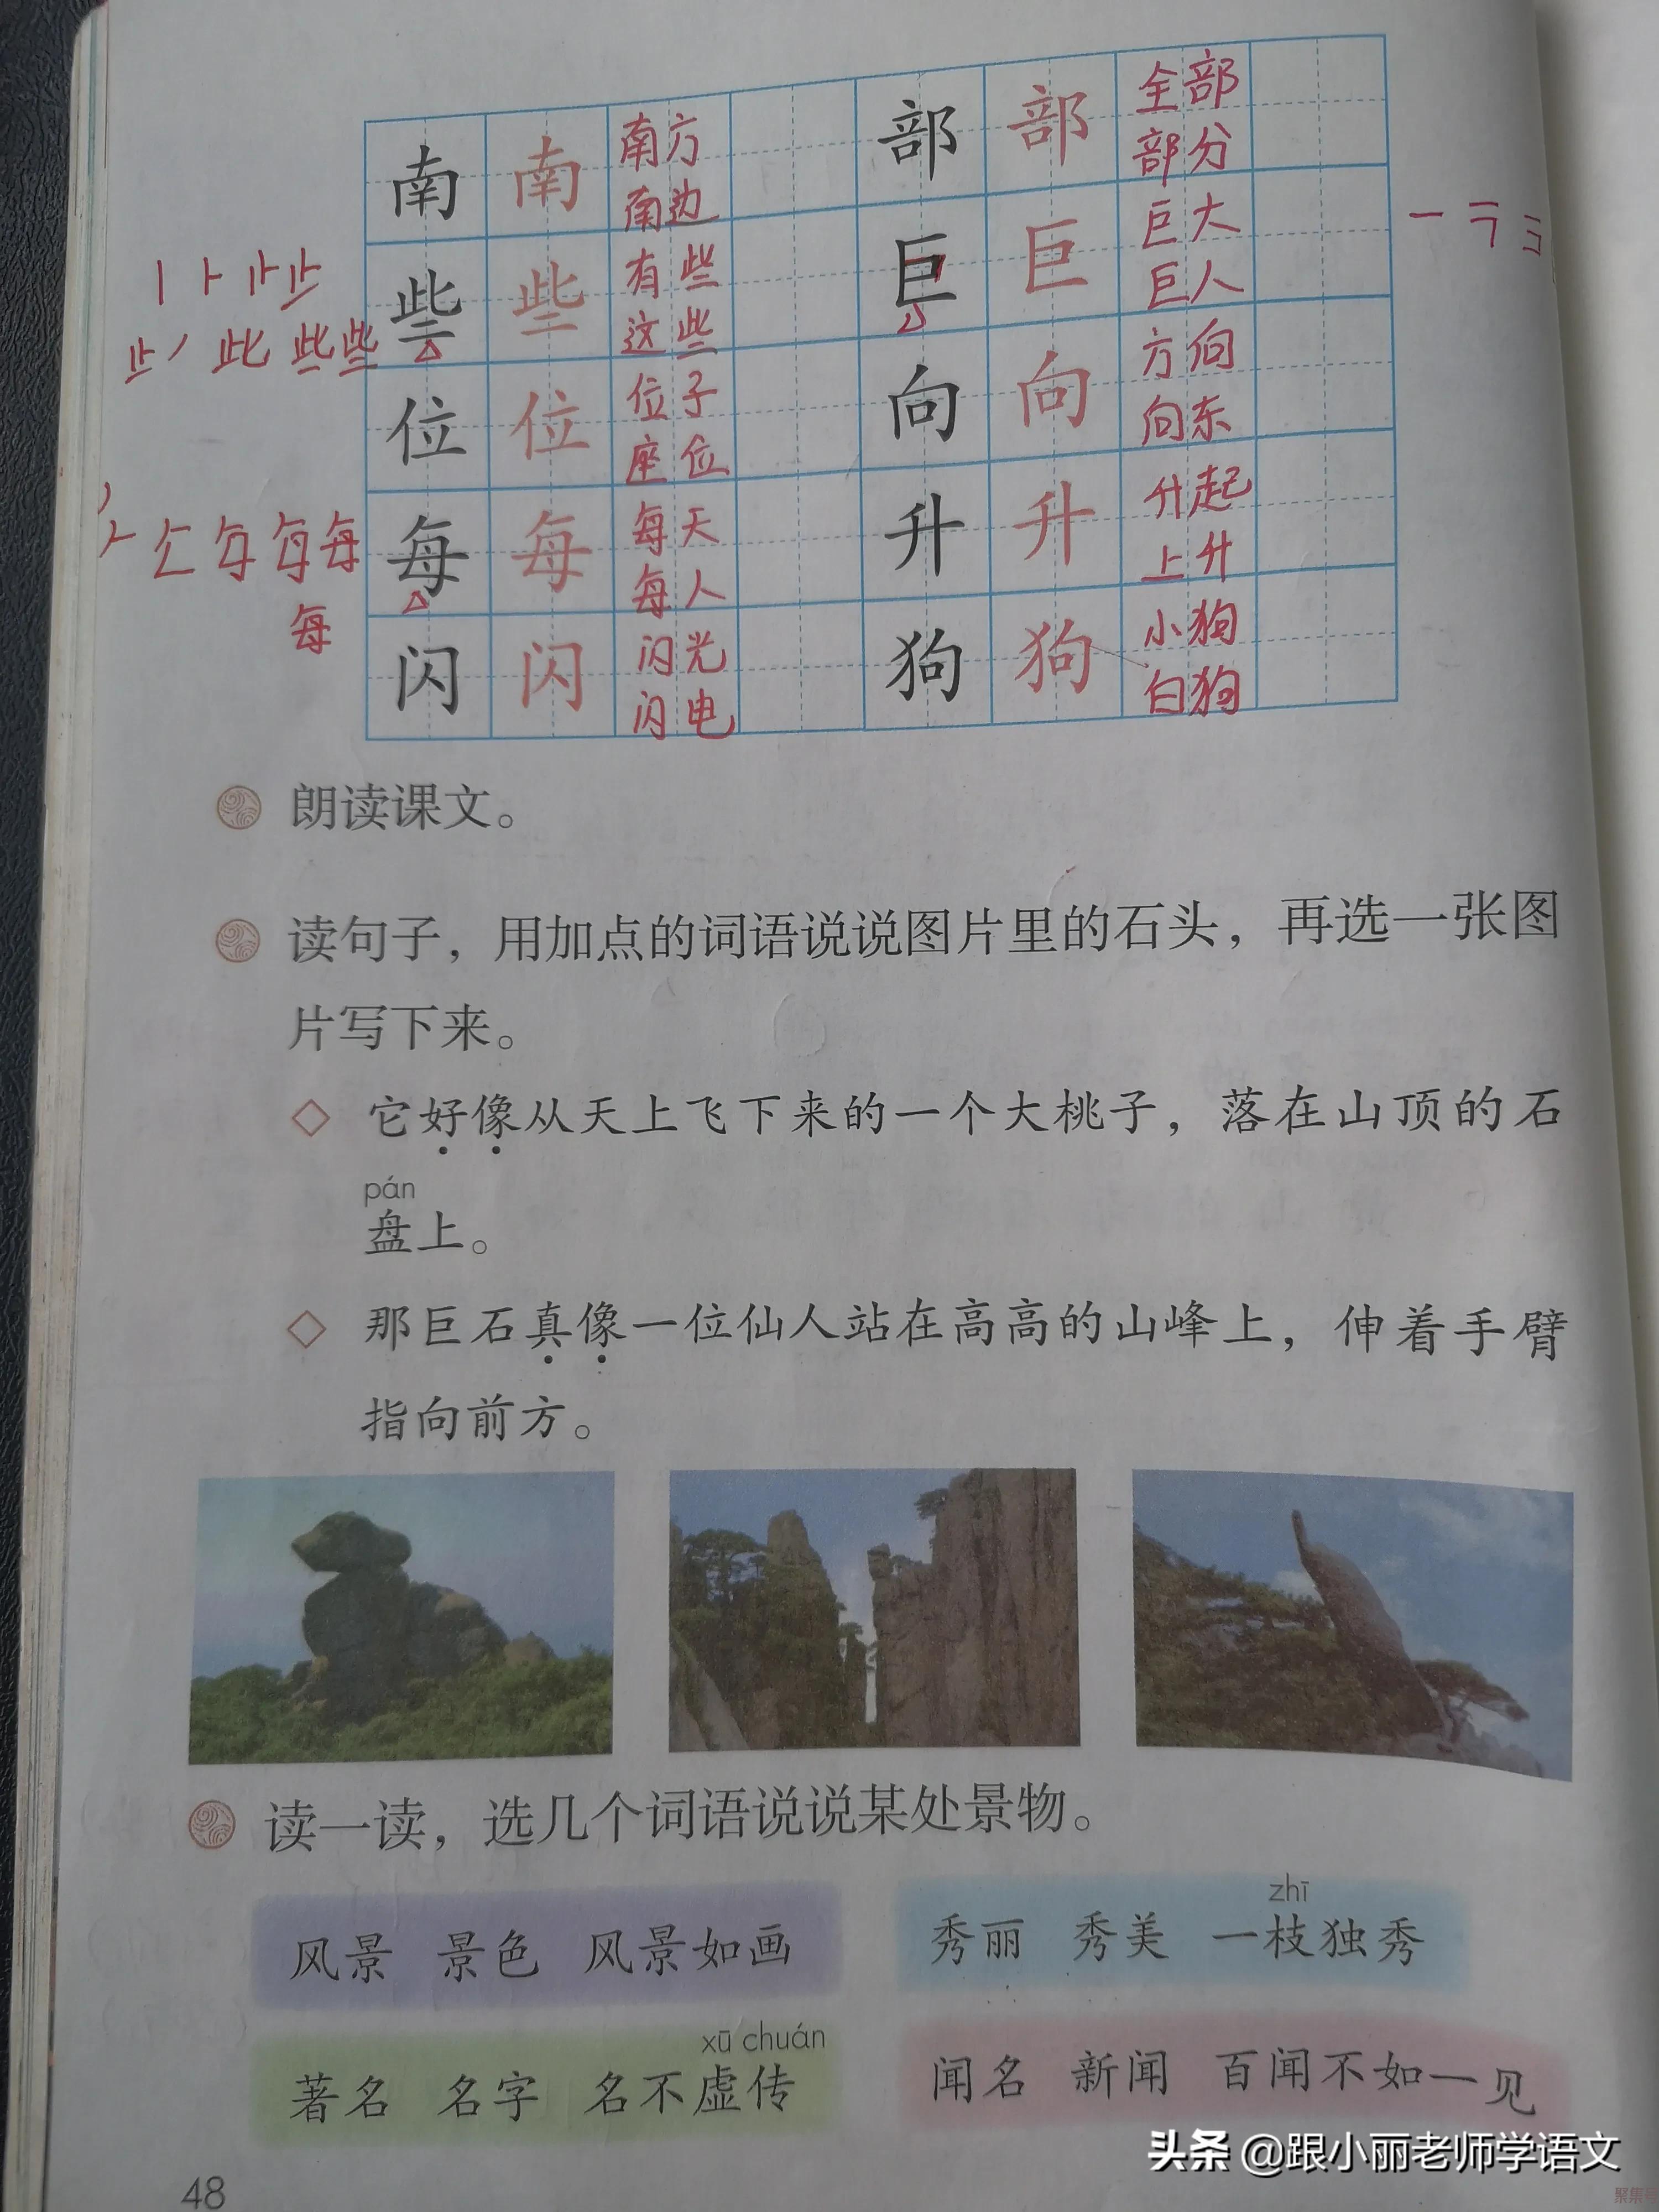 南 南 南方 部 部 全部
南边 部分
些 些 有些 巨 巨 巨大
这些 巨人
位 位 位子 向 向 方向
座位 向东
每 每 每天 升 升 升起
每人 上升
闪 闪 闪光 狗 狗 小狗
闪电 白狗
止 此 些
每
朗读课文。
读句子，用加点的词语说说图片里的石头，再选一张图
片写下来。
它好像从天上飞下来的一个大桃子，落在山顶的石
pán
盘上。
那巨石真像一位仙人站在高高的山峰上，伸着手臂
指向前方。
读一读，选几个词语说说某处景物。
zhī
风景 景色 风景如画 秀丽 秀美 一枝独秀
xū chuán
著名 名字 名不虚传 闻名 新闻 百闻不如一见
头条 @跟小丽老师学语文
48
聚集号